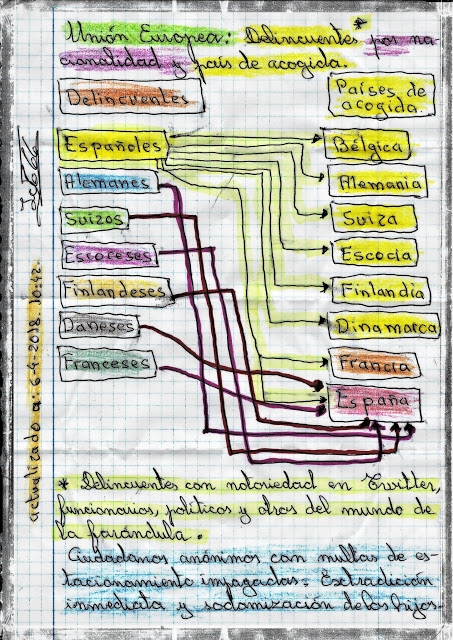 Unión Europea: Delincuentes * por na-
cionalidad y país de acogida.
Delincuentes
Países de
acogida.
Españoles
Alemanes
Suizos
Escoceses
Finlandeses
Daneses
Franceses
Bélgica
Alemania
Suiza
Escocia
Finlandia
Dinamarca
Francia
España
actualizado a: 6-4-2018 10:42
* Delincuentes con notoriedad en Twitter,
funcionarios, políticos y otros del mundo de
la farándula.
Ciudadanos anónimos con multas de es-
tacionamiento impagadas: Extradición
inmediata y sodomización de los hijos.